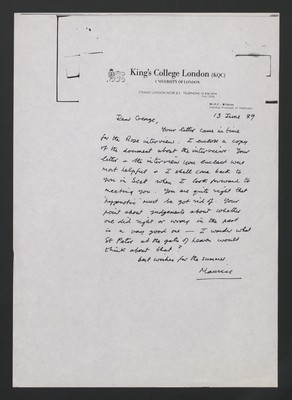 King's College London (KQC)
UNIVERSITY OF LONDON
STRAND LONDON WC2R 2LS TELEPHONE 01-836 5454
M.H.F. Wilkins
13 June 89
Dear George,
Your letter came in time
for the Rose interview. I enclose a copy
of the document about the interview. Your
letter & the interview you enclosed were
most helpful & I shall come back to
you in Sept when I look forward to
meeting you. You are quite right that
hypnosis must be got rid of. Your
point about judgements about whether
one did right or wrong in the past
is a very good one — I wonder what
St Peter at the gate of heaven would
think about that?
best wishes for the summer
Maurice